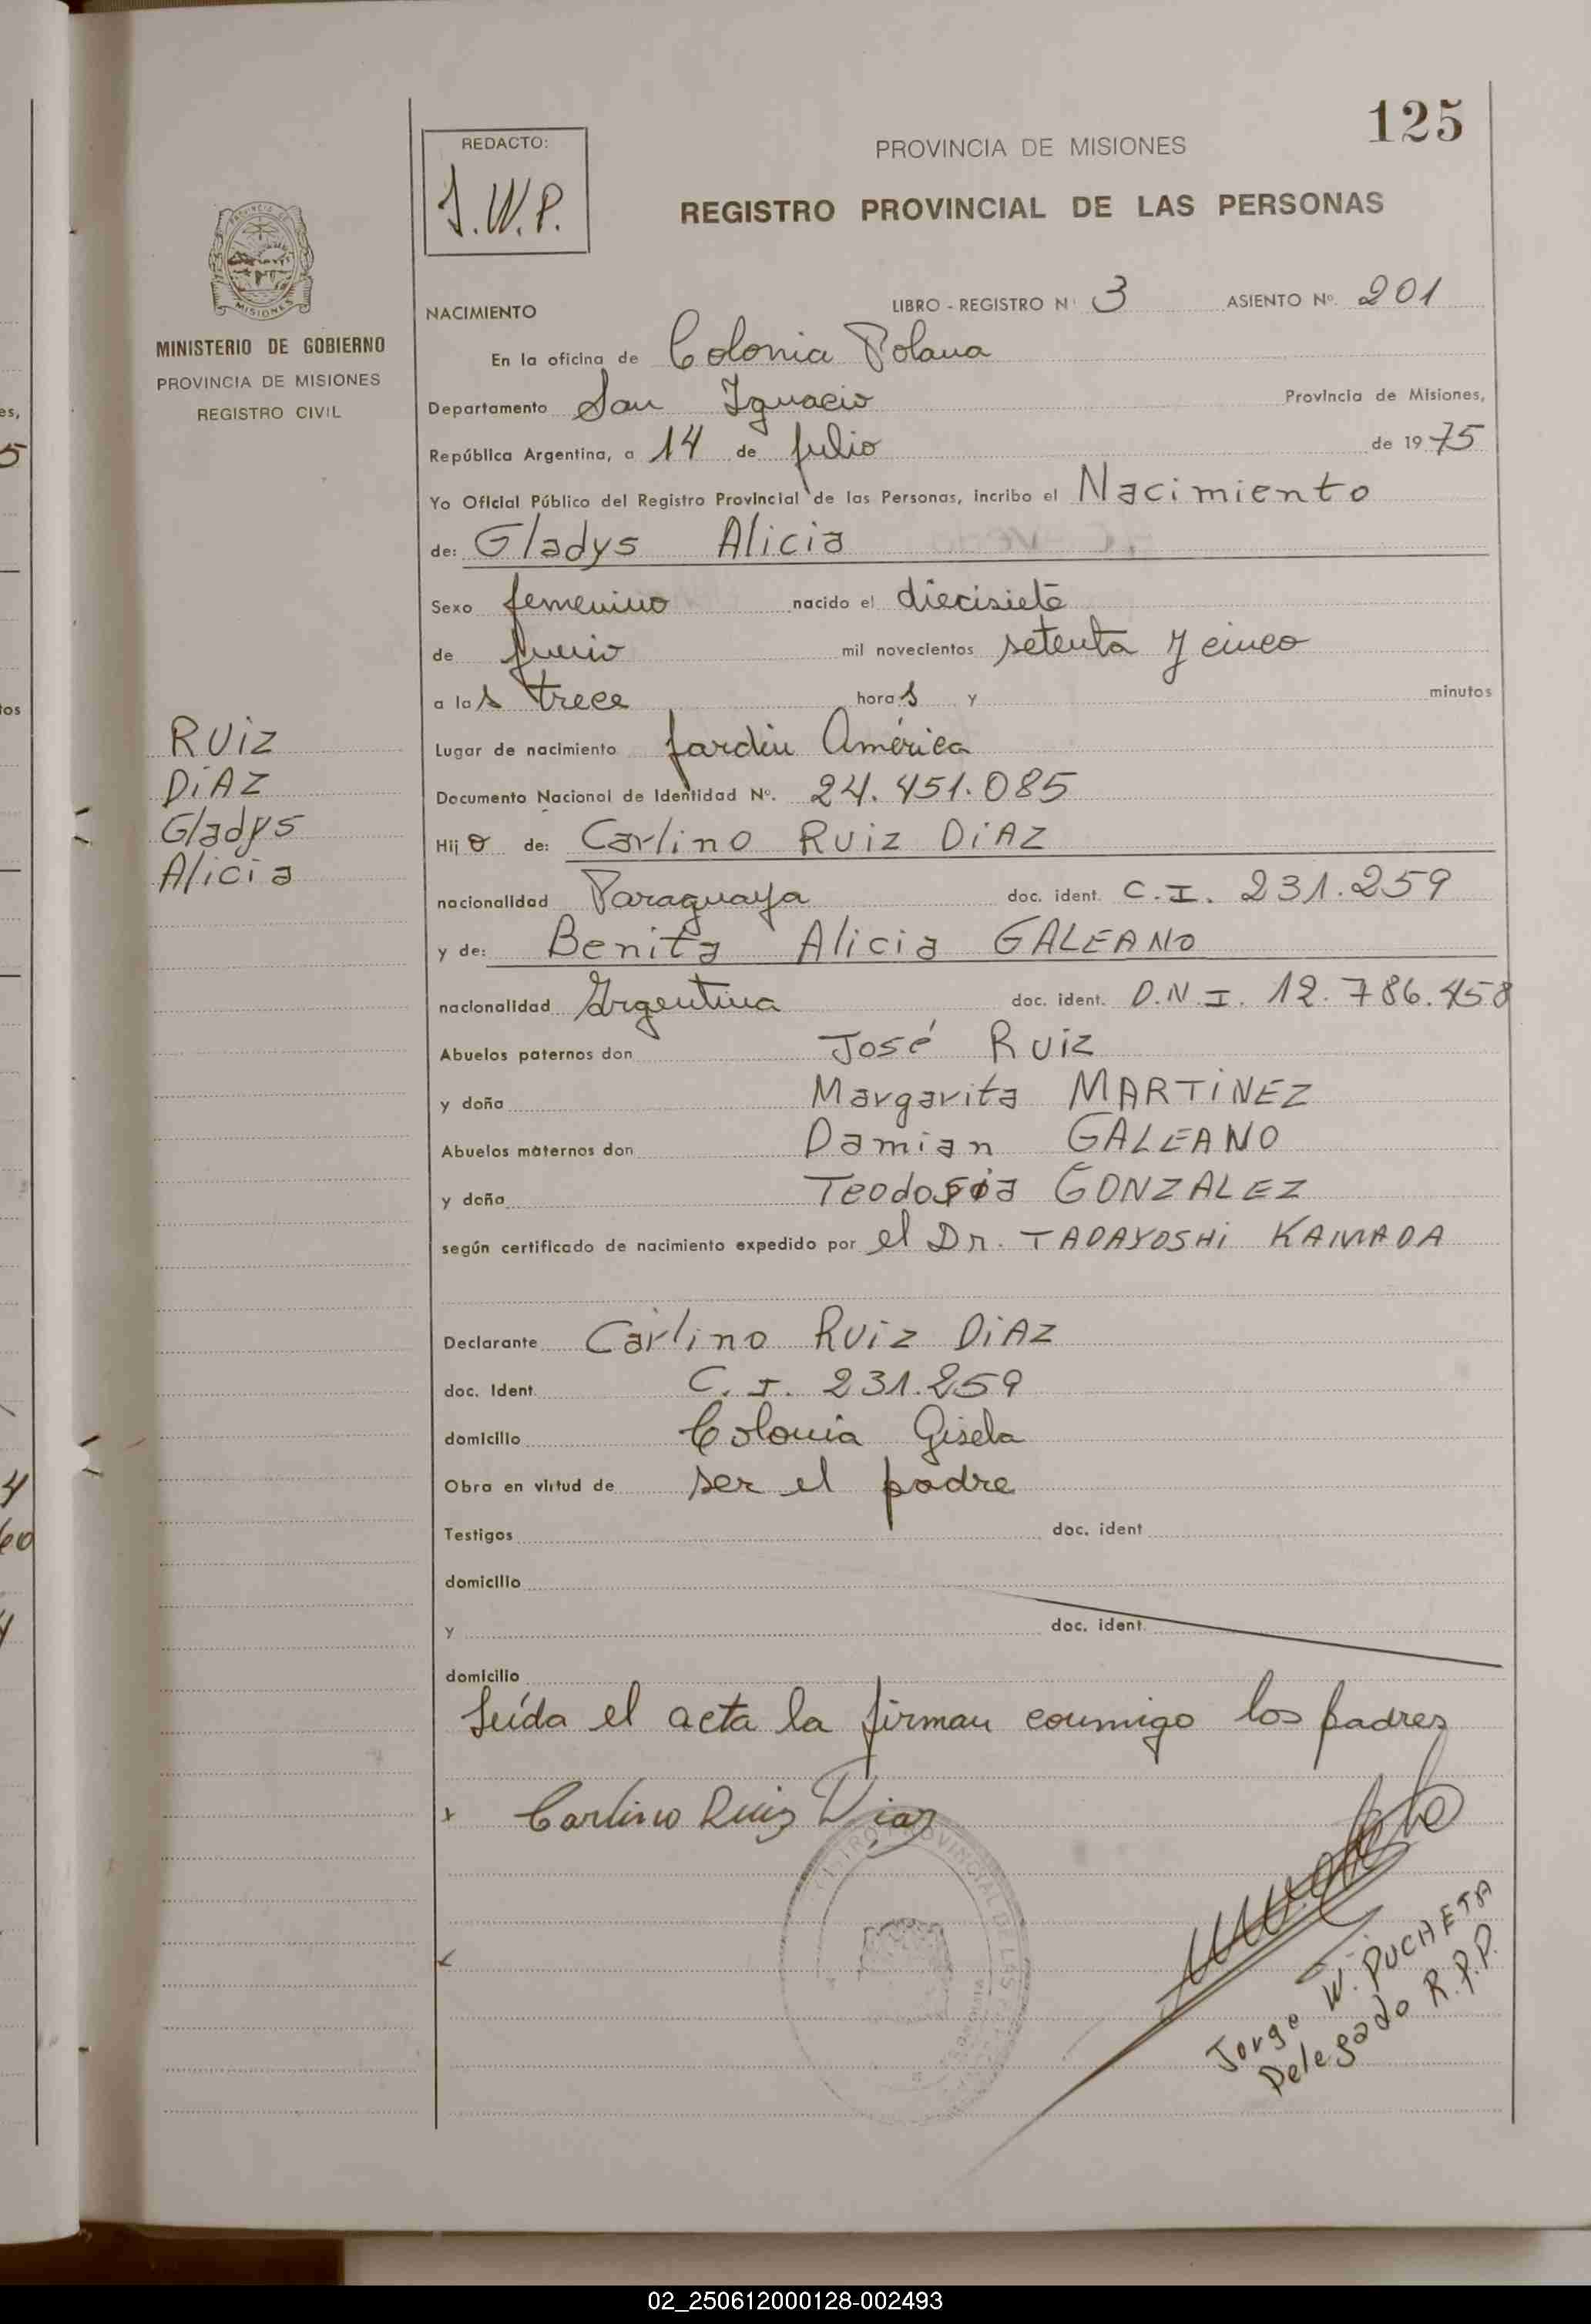 125
REDACTO:
J.W.P.
PROVINCIA DE MISIONES
REGISTRO PROVINCIAL DE LAS PERSONAS
MISIONES
MINISTERIO DE GOBIERNO
PROVINCIA DE MISIONES
REGISTRO CIVIL
RUiZ
DiAZ
Gladys
Alicia
NACIMIENTO LIBRO - REGISTRO Nº 3 ASIENTO Nº. 201
En la oficina de Colonia Polana
Departamento San Ignacio Provincia de Misiones,
República Argentina, a 14 de julio de 1975
Yo Oficial Público del Registro Provincial de las Personas, incribo el Nacimiento
de: Gladys Alicia
Sexo femenino nacido el diecisiete
de junio mil novecientos setenta y cinco
a las trece horas y minutos
Lugar de nacimiento Jardín América
Documento Nacional de Identidad Nº. 24.451.085
Hija de: Carlino RUiZ DiAZ
nacionalidad Paraguaya doc. ident. C.I. 231.259
y de: Benita Alicia GALEANO
nacionalidad Argentina doc. ident. D.N.I. 12.786.458
Abuelos paternos don José RUiZ
y doña Margarita MARTiNEZ
Abuelos maternos don Damian GALEANO
y doña Teodosia GONZALEZ
según certificado de nacimiento expedido por el Dr. TADAYOSHi KAMADA
Declarante Carlino RUiZ DiAZ
doc. Ident. C.I. 231.259
domicilio Colonia Gisela
Obra en virtud de ser el padre
Testigos doc. ident
domicilio
y doc. ident.
domicilio
Leída el acta la firman conmigo los padres
x Carlino Ruiz Diaz
Jorge W. PUCHETA
Delegado R.P.P.
02_250612000128-002493